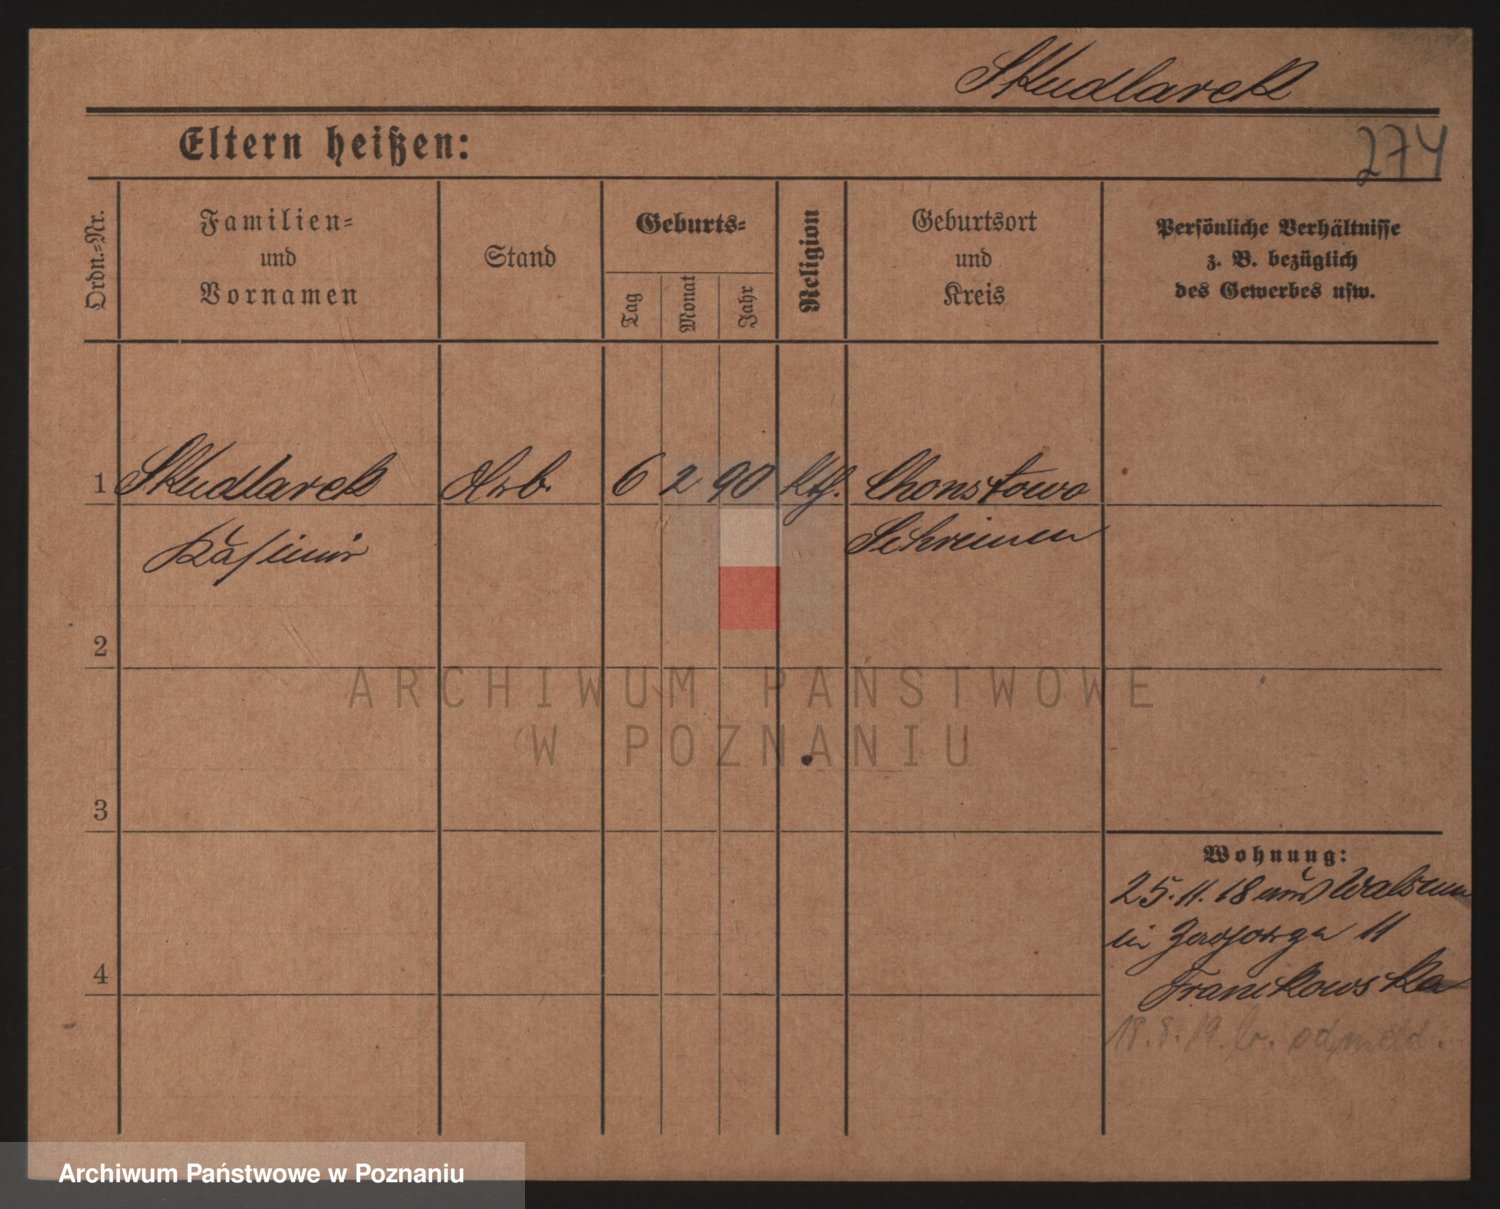 Skudlarek
Eltern heißen:
274
Ordn.=Nr.
Familien=
und
Vornamen
Stand
Geburts=
Tag
Monat
Jahr
Religion
Geburtsort
und
Kreis
Persönliche Verhältnisse
z. B. bezüglich
des Gewerbes usw.
1 Skudlarek Arb. 6 2 90 Kth. Chonstowo
Kasimir Schrimm
2
ARCHIWUM PAŃSTWOWE
W POZNANIU
3
Wohnung:
25.11.18 aus Walsum
in 11
4
Frankowska
18.8.19.
Archiwum Państwowe w Poznaniu